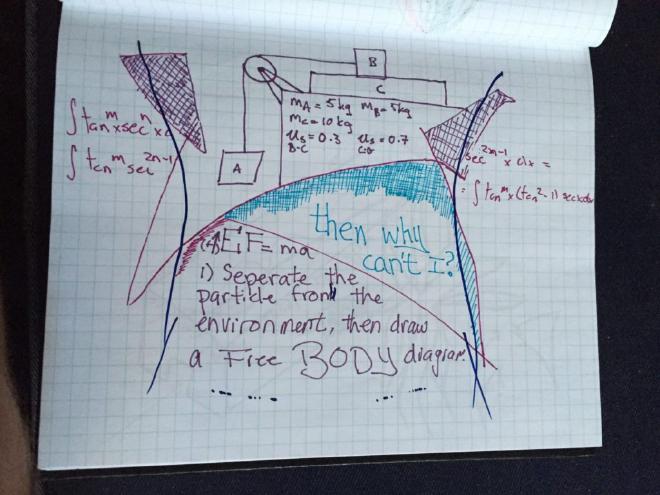 B
C
m_A = 5kg m_B = 5kg
m_C = 10kg
u_s = 0.3 u_s = 0.7
B-C
A
∫ tan^m x sec^n x
∫ tan^m sec^2n-1
sec^2n-1 x dx =
= ∫ tan^m x (tan^2 - 1)
then why
can't I?
ΣF = ma
1) Seperate the
particle from the
environment, then draw
a Free BODY diagram